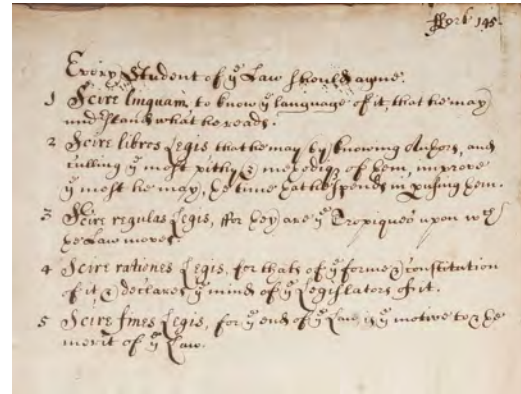 Every Student of yᵉ Law should ayme.
1 Scire linguam, to know yᵉ language of it, that he may
understand what he reads.
2 Scire libros Legis that he may by knowing Authors, and
culling yᵉ most pithy & of them, improve
yᵉ most he may, the time that he spends in them.
3 Scire regulas Legis, ffor they are yᵉ Tropiques upon wᶜʰ
the Law moves.
4 Scire rationes Legis, for thats of yᵉ forme & constitution
of it, & declares yᵉ minds of yᵉ Legislators of it.
5 Scire fines Legis, for yᵉ end of yᵉ Law, is yᵉ motive to & the
merit of yᵉ Law.